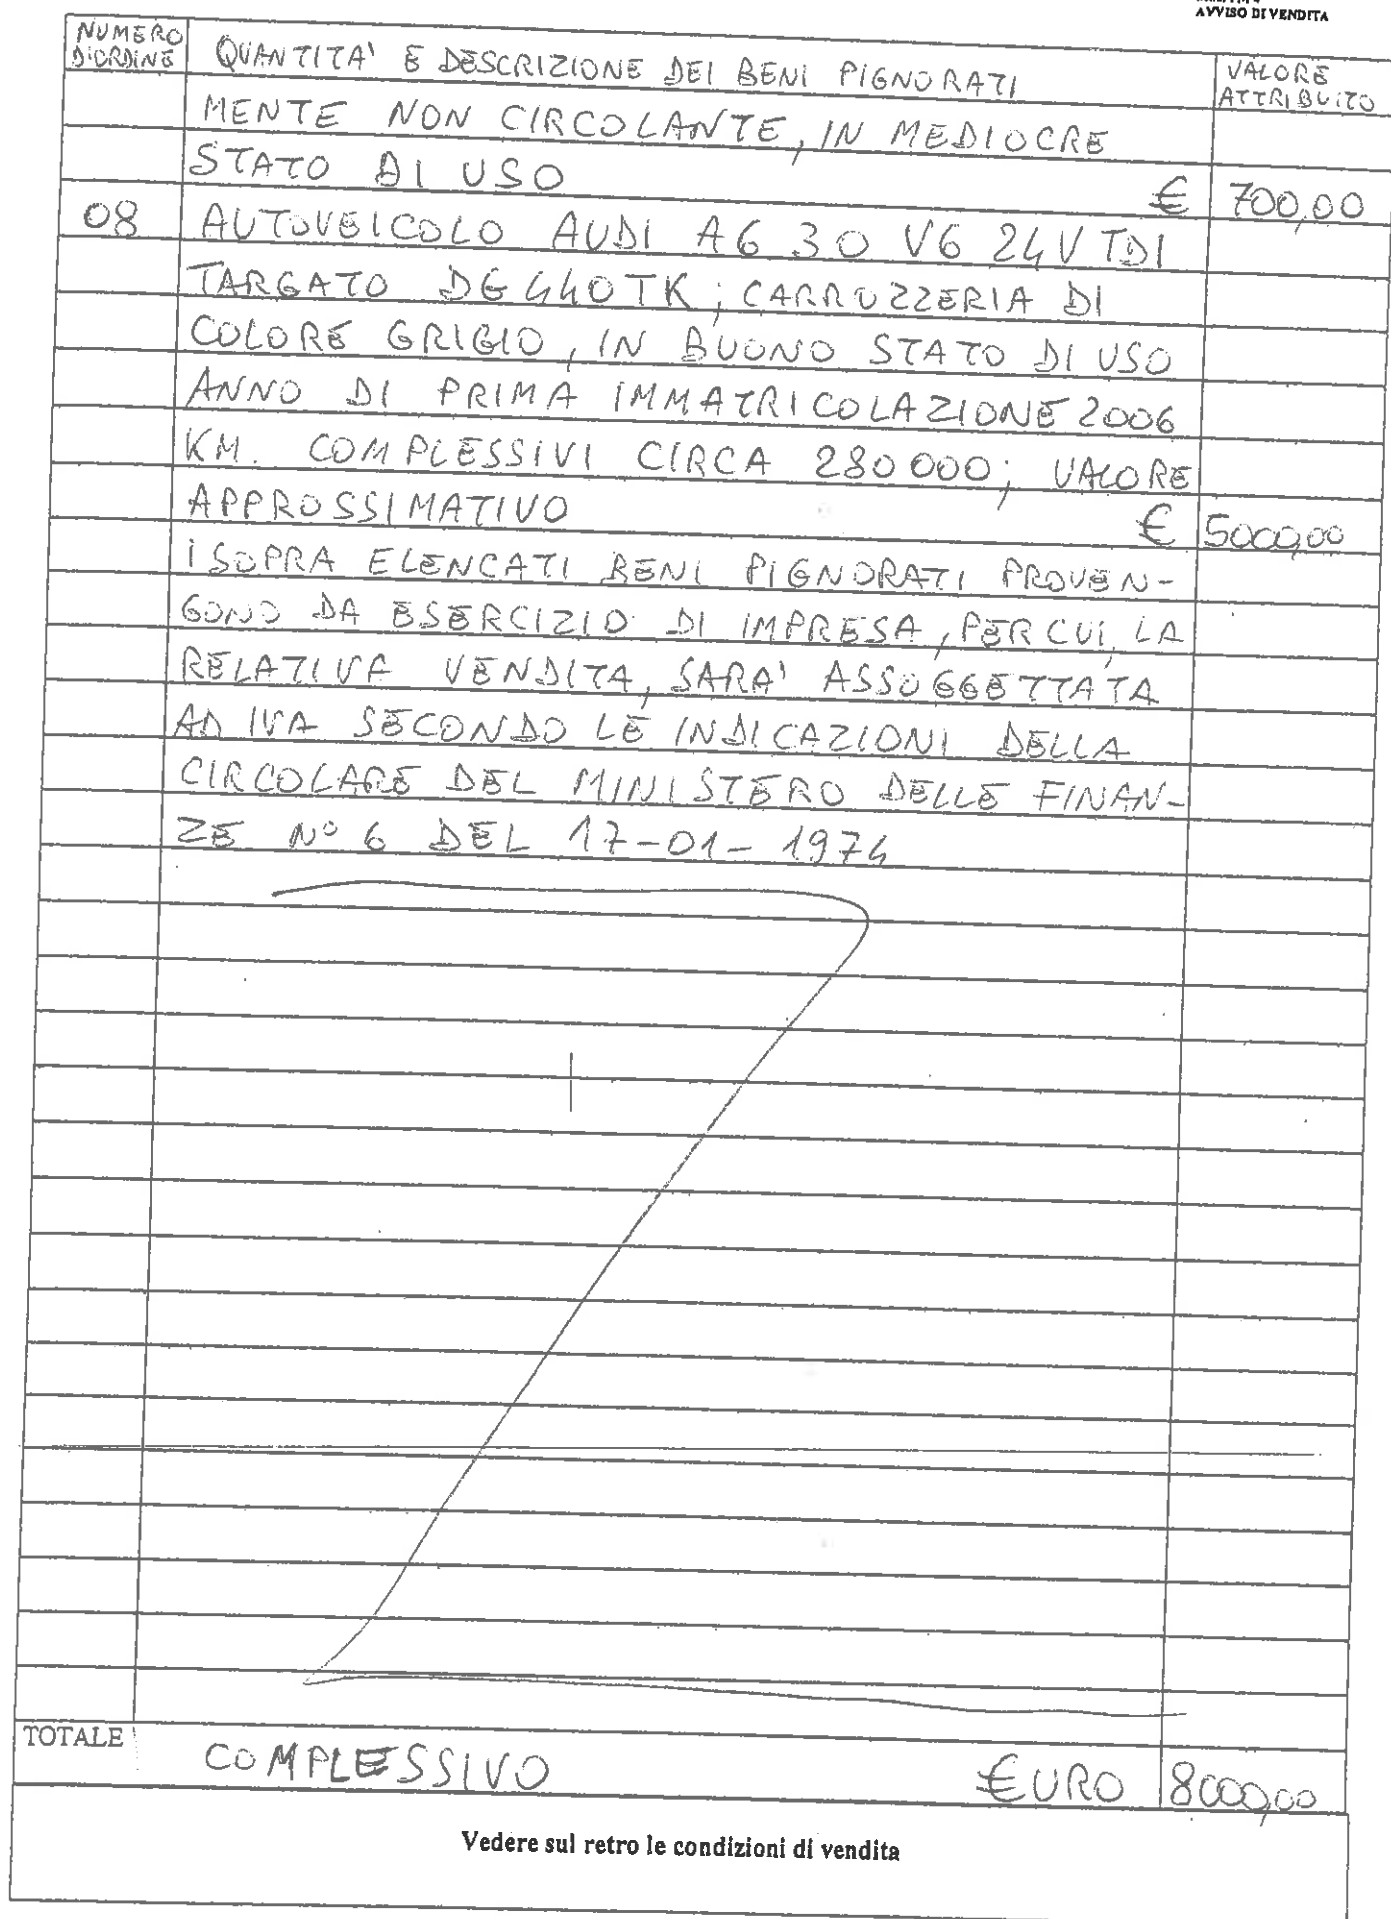 AVVISO DI VENDITA
NUMERO D'ORDINE QUANTITA' E DESCRIZIONE DEI BENI PIGNORATI VALORE ATTRIBUITO
MENTE NON CIRCOLANTE, IN MEDIOCRE
STATO DI USO € 700,00
08 AUTOVEICOLO AUDI A6 3.0 V6 24V TDI
TARGATO DG440TK; CARROZZERIA DI
COLORE GRIGIO, IN BUONO STATO DI USO
ANNO DI PRIMA IMMATRICOLAZIONE 2006
KM. COMPLESSIVI CIRCA 280000; VALORE
APPROSSIMATIVO € 5000,00
I SOPRA ELENCATI BENI PIGNORATI PROVEN-
GONO DA ESERCIZIO DI IMPRESA, PER CUI, LA
RELATIVA VENDITA, SARA' ASSOGGETTATA
AD IVA SECONDO LE INDICAZIONI DELLA
CIRCOLARE DEL MINISTERO DELLE FINAN-
ZE N° 6 DEL 17-01-1974
TOTALE COMPLESSIVO €URO 8000,00
Vedere sul retro le condizioni di vendita